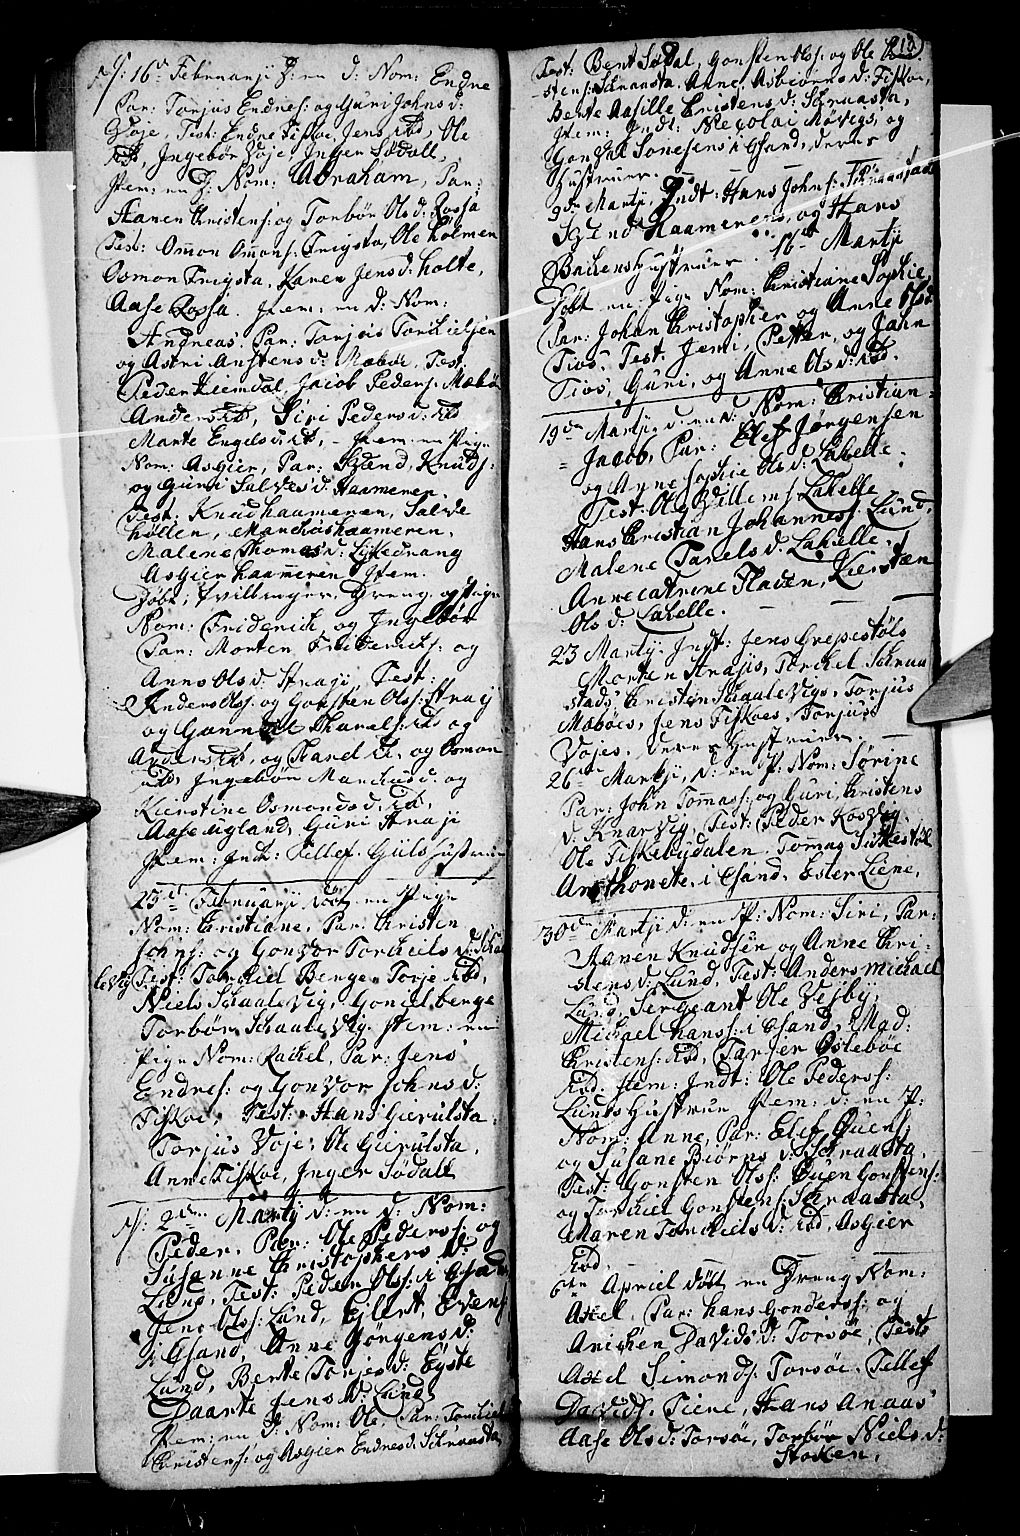 16de Februarij D: en D: Nom: Endre
Par: Torjus Endres: og Guri Johns d:
Voje, Test: Endre Fiskoe, Jens ibd, Ole
ibd, Ingebor Voje, Inger Sødall,
Item: en D: Nom: Abraham, Par:
Haaven Christens: og Torbor Ols d: Rossa
Test: Omon Omons: Frigsta, Ole Holmen
Osmon Frigsta, Karen Jens d: Holte,
Aase Rossa. Item: en D: Nom:
Andreas. Par: Torjuis Torckielsen
og Astri Anstens d: Mæboe, Test:
Peder Heimdal, Jacob Peders: Mæbøe
Anders ibd, Siri Peders d: ibd
Marte Engels d: ibd, Item: en Pige
Nom: Asgier, Par: Svend Knuds:
og Guri Salves d: Haameren.
Test: Knud Haameren, Salve
Høllen, Marckus Haameren,
Malene Thomas d: Lykkedrang
Asgier Haameren. Item.
Døbt: tvillinger, Dreng og Pige
Nom: Friderich, og Ingebor
Par: Morten Friderichs: og
Anne Ols d: Straji, Test:
Anders Ols: og Gonsten Ols: Straij
og Gunnild Tharals: ibd og
Anders ibd, og Tharel ibd, og Osmon
ibd, Ingebor Marckus d: og
Kierstine Osmonds d: ibd,
Aase Egland, Guri Straji
Item: Indt: Tellef Guls Hustrue
23de Februarij Døbt en Pige
Nom: Christiane, Par: Christen
Johns: og Gonvor Torckiels d: Skaa
levig Test: Torckiel Berge, Torje ibd,
Niels Skaalevig, Goniel Berge
Torbør Skaalevig. Item: en
Pige Nom: Rachel, Par: Jens
Endres: og Gonvor Johns d:
Fiskoe, Test: Hans Gierulsta
Torjus Voje, Ole Gierulsta,
Anne Fiskoe, Inger Sødall
2den Martij D: en D: Nom:
Peder. Par: Ole Peders: og
Susanne Christophers d:
Lund, Test: Peder Ols: i Csand
Jens Ols: Lund, Ejlert Evens:
i Csand, Anne Jørgens d:
Lund, Berte Torjes d: Egste
Daarte Jens d: Lund
Item: en D: Nom: Ole, Par: Torckiel
Christens: og Asgier Endres d: Schraasta
Test: Bert Sødal, Gonsten Ols: og Ole
stens: Schraasta. Anne Asbeorns d: Fiskoe,
Berte Aasille Cristens d: Schraasta,
Item: Indt: Necolai Møvigs, og
Gonval Sonesens i Csand, deres
Hustruer.
9de Martij, Indt: Hans Johns: Schraastads
Svend Haamerens, og Hans
Backens Hustruer. 16de Martij
Døbt en Pige Nom: Christiane Sophie
Par: Johan Christopher og Anne Ols d:
Tvos, Test: Jemi, Petter, og Jahn
Tvos, Guri, og Anne Ols d: ibd.
19de Martij D: en D: Nom: Christian
Jacob, Par: Elef Jørgensen
og Anne Sophie Ols d: Lahelle.
Test: Ole Villems: Lahelle
Hans Christian Johannes: Lund,
Malene Tarels d: Lahelle,
Anne Catrine Fladen, Kiersten
Ols d: Lahelle.
23 Martij Indt: Jens Crepestøls
Morten Strajis, Torckel Schraa
stads, Christen Skaalevigs, Torjus
Mæboes, Jens Fiskoes, Torjus
Vojes, deres Hustruer.
26de Martij, D: en P: Nom: Sørine
Par: John Tommas: og Guri, Christens
d: Knarvig, Test: Peder Kosvig,
Ole Fiskebydalen, Tommas Suttestøl
Anthonete i Csand, Ester Liene,
30de Martij D: en P: Nom: Siri, Par:
Haaven Knudsen og Anne Chri-
stens d: Lund, Test: Anders Michael
Lund, Sergeant Ole Vejby,
Michael Hans: i Csand, Mad:
Christens: ibd, Tarjer Østebøe
ibd. Item: Indt: Ole Peders:
Lunds Hustrue Item: D: en P:
Nom: Anne, Par: Elef Ouens:
og Susane Biørns d: Schraasta,
Test: Gonsten Ols: Ouen Gonstens:
og Torckiel Gonstens: Schraasta,
Maren Torckiels d: ibd, Asgier
ibd.
6te Apriel Døbt en Dreng Nom:
Axel, Par: Hans Gonders: og
Anichen Davids d: Torsøe, Test:
Axel Simonds: Torsøe, Tellef
Davids: Tiene, Hans Anaas
Aase Ols d: Torsøe, Torbor Niels d:
Stoken.